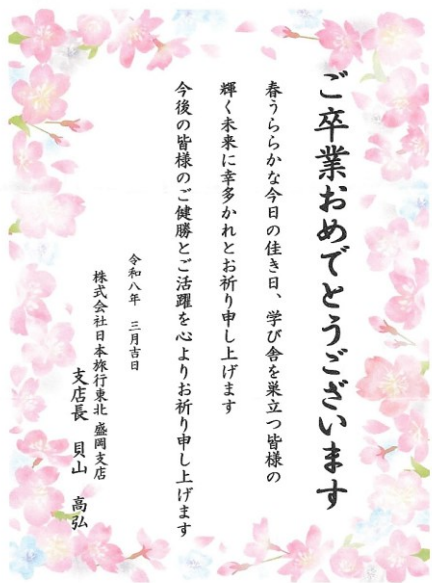 ご卒業おめでとうございます
春うららかな今日の佳き日、学び舎を巣立つ皆様の
輝く未来に幸多かれとお祈り申し上げます
今後の皆様のご健勝とご活躍を心よりお祈り申し上げます
令和八年 三月吉日
株式会社日本旅行東北 盛岡支店
支店長 貝山 高弘